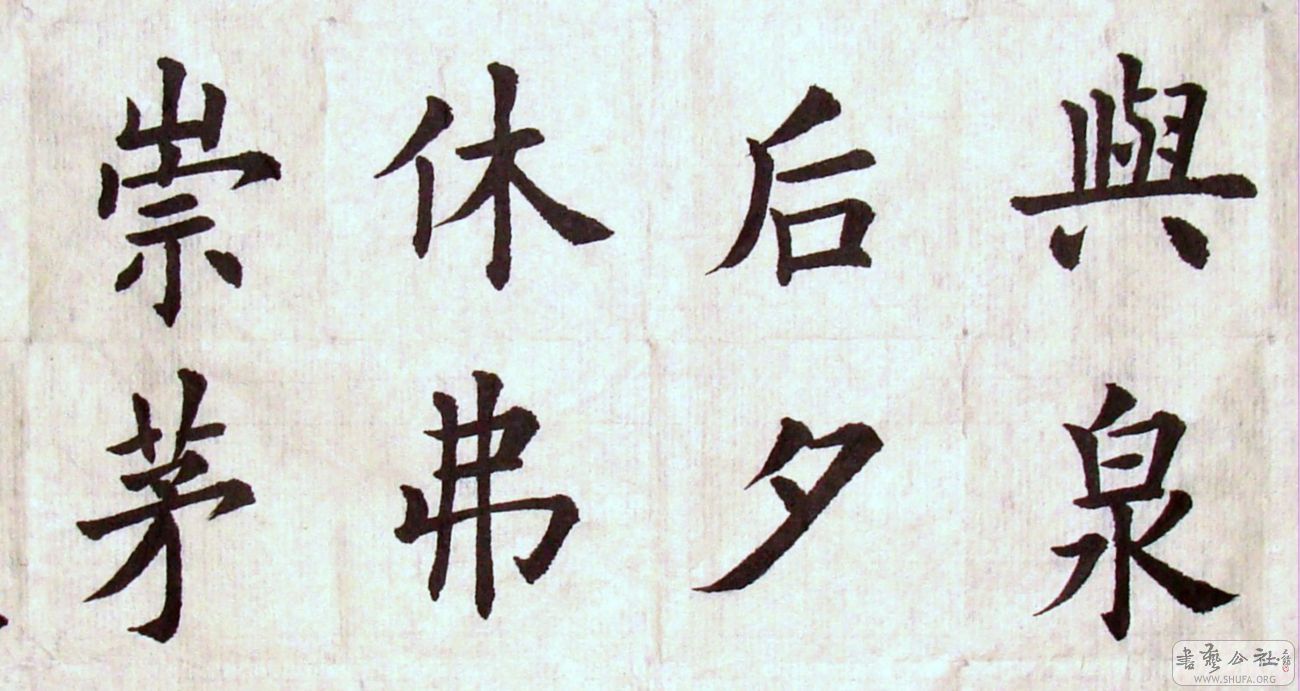 與泉
后夕
休弗
崇茅
書藝公社
WWW.SHUFA.ORG